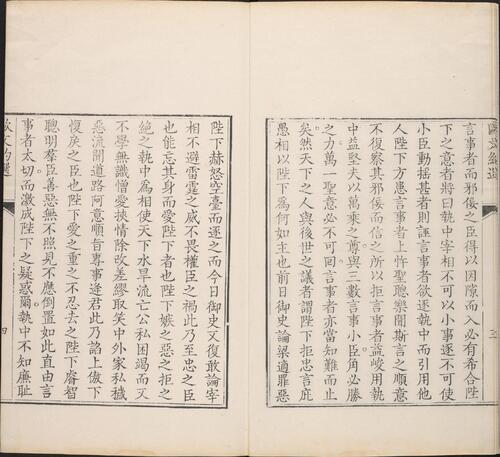 三
言事者而邪佞之臣得以因隙而入必有希合陛
下之意者將曰執中宰相不可以小事逐不可使
小臣動搖甚者則誣言事者欲逐執中而引用他
人陛下方患言事者上忤聖聰樂聞斯言之順意
不復察其邪佞而信之所以拒言事者益峻用執
中益堅夫以萬乘之尊與三數言事小臣角必勝
之力萬一聖意必不可回言事者亦當知難而止
矣然天下之人與後世之議者謂陛下拒忠言庇
愚相以陛下為何如主也前日御史論梁適罪惡
陛下赫怒空臺而逐之而今日御史又復敢論宰
相不避雷霆之威不畏權臣之禍此乃至忠之臣
也能忘其身而愛陛下者也陛下嫉之惡之拒之
絕之執中為相使天下水旱流亡公私困竭而又
不學無識憎愛挾情除改差繆取笑中外家私穢
惡流聞道路阿意順旨專事逢君此乃諂上傲下
愎戾之臣也陛下愛之重之不忍去之陛下睿智
聰明羣臣善惡無不照見不應倒置如此直由言
事者太切而激成陛下之疑惑爾執中不知廉恥
四